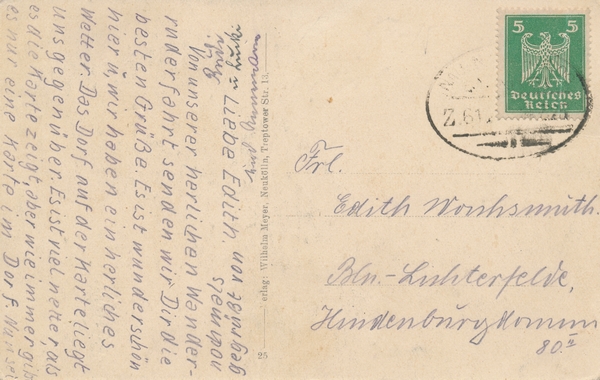 Liebe Edith.
Von unserer herlichen Wander-
ruderfahrt senden wir Dir die
besten Grüße. Es ist wunderschön
hier u. wir haben ein herliches
Wetter. Das Dorf auf der Karte liegt
uns gegenüber. Es ist viel netter als
es die Karte zeigt, aber wie immer gib
es nur eine Karte im Dorf.
nochmals
von
Verlag: Wilhelm Meyer, Neukölln, Treptower Str. 13.
25
5 5
Deutsches
Reich
Z. 61
Frl.
Edith
Bln.-Lichterfelde,
Hindenburgdamm
80.II